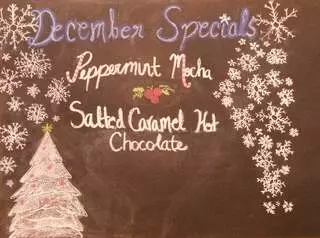 December Specials
Peppermint Mocha
Salted Caramel Hot
Chocolate